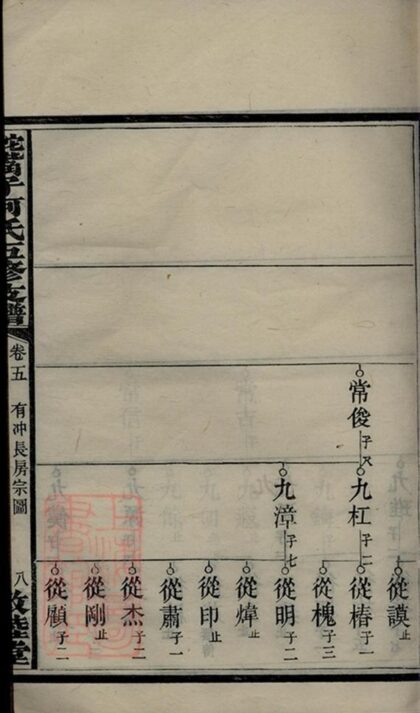 常俊子八
九杠子二
九漳子七
從謨止
從椿子一
從槐子三
從明子二
從煒止
從印止
從肅子一
從杰子二
從剛止
從顧子二
何氏五修支譜
卷五
有冲長房宗圖
八
敦睦堂